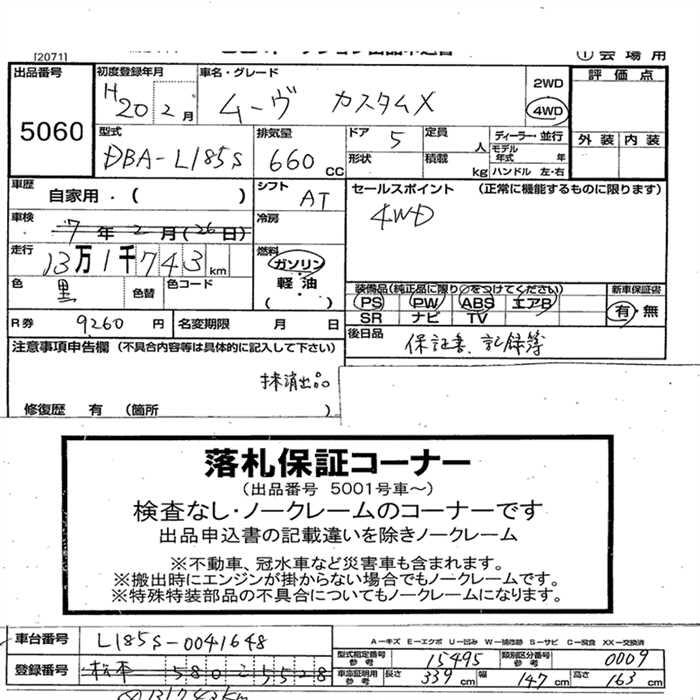 [2071]
① 会場用
出品番号
5060
初度登録年月
H20 2 月
車名・グレード
ムーヴ カスタムX
2WD
4WD
評価点
外装 内装
型式
DBA-L185S
排気量
660 CC
ドア 5
形状
定員 人
積載 kg
ディーラー・並行
モデル年式 年
ハンドル 左・右
車歴
自家用・( )
シフト
AT
セールスポイント (正常に機能するものに限ります)
4WD
車検
7年2月(26日)
冷房
走行
13万1千743km
燃料
ガソリン
軽油
( )
色
黒
色替
色コード
装備品(純正品に限り○をつけてください)
PS PW ABS エアB
SR ナビ TV
新車保証書
有・無
R券 9260 円
名変期限 月 日
後日品
保証書、記録簿
注意事項申告欄 (不具合内容等は具体的に記入して下さい)
抹消出品
修復歴 有 (箇所 )
落札保証コーナー
(出品番号 5001号車～)
検査なし・ノークレームのコーナーです
出品申込書の記載違いを除きノークレーム
※不動車、冠水車など災害車も含まれます。
※搬出時にエンジンが掛からない場合でもノークレームです。
※特殊特装部品の不具合についてもノークレームになります。
車台番号
L185S-0041648
A－キズ E－エクボ U－凹み W－補修跡 S－サビ C－腐食 XX－交換済
型式指定番号 参考 15495
類別区分番号 参考 0009
登録番号
松本 580 こ 5528
車庫証明用 参考 長さ 339 cm 幅 147 cm 高さ 163 cm
131743km